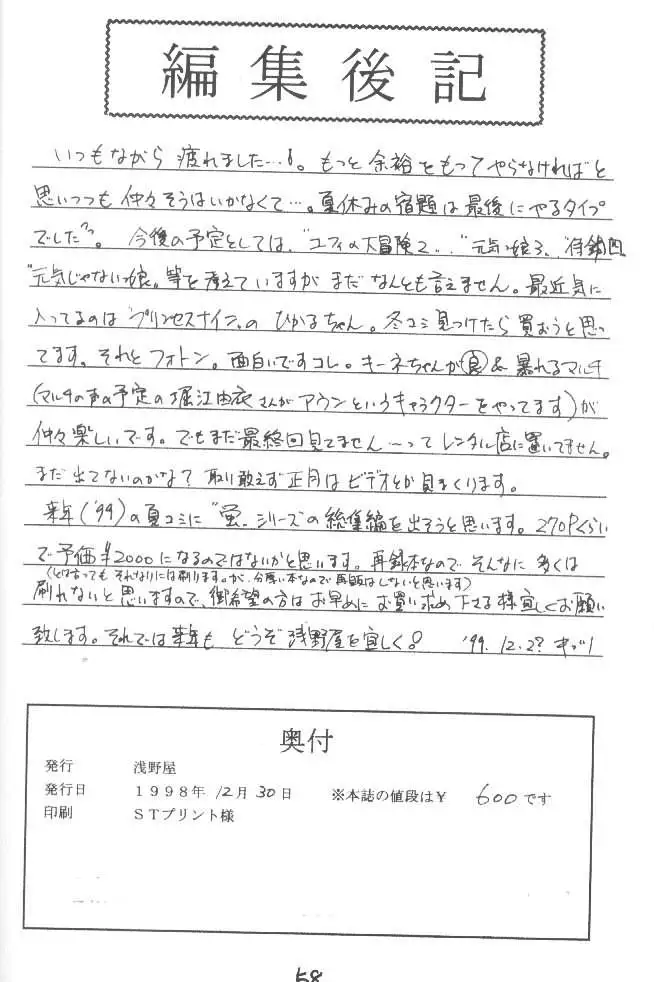 編集後記
いつもながら 疲れました…。もっと余裕をもってやらなければと
思いつつも仲々そうはいかなくて…。夏休みの宿題は最後にやるタイプ
でした。今後の予定としては、"ユフィの大冒険2" "元気っ娘3"
"元気じゃないっ娘。等を考えていますが まだ なんとも言えません。最近気に
入ってるのは"プリンセスナイン"の ひかるちゃん。冬コミ見つけたら買おうと思っ
てます。それと フォトン。面白いですコレ。キーネちゃんが良&暴れるマルチ
(マルチの声の予定の堀江由衣さんがアウンというキャラクターをやってます)が
仲々楽しいです。でもまだ最終回見てません〜ってレンタル店に置いてません。
まだ出てないのかな? 取り敢えず正月はビデオとか見まくります。
来年('99)の夏コミに"蛍"シリーズの総集編を出そうと思います。270Pくらい
で予価¥2000になるのではないかと思います。再録本なので そんなに多くは
(とは言っても それなりには刷りますが、分厚い本なので再販はしないと思います)
刷れないと思いますので、御希望の方はお早めにお買い求め下さる様宜しくお願い
致します。それでは来年も どうぞ浅野屋を宜しく! '99.12.27
奥付
発行 浅野屋
発行日 1998年 12月 30日 ※本誌の値段は¥ 600です
印刷 STプリント様
58